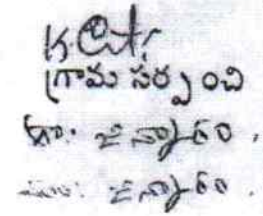 గ్రామ సర్పంచి
గ్రా॥ జిన్నారం.
మం॥ జిన్నారం.